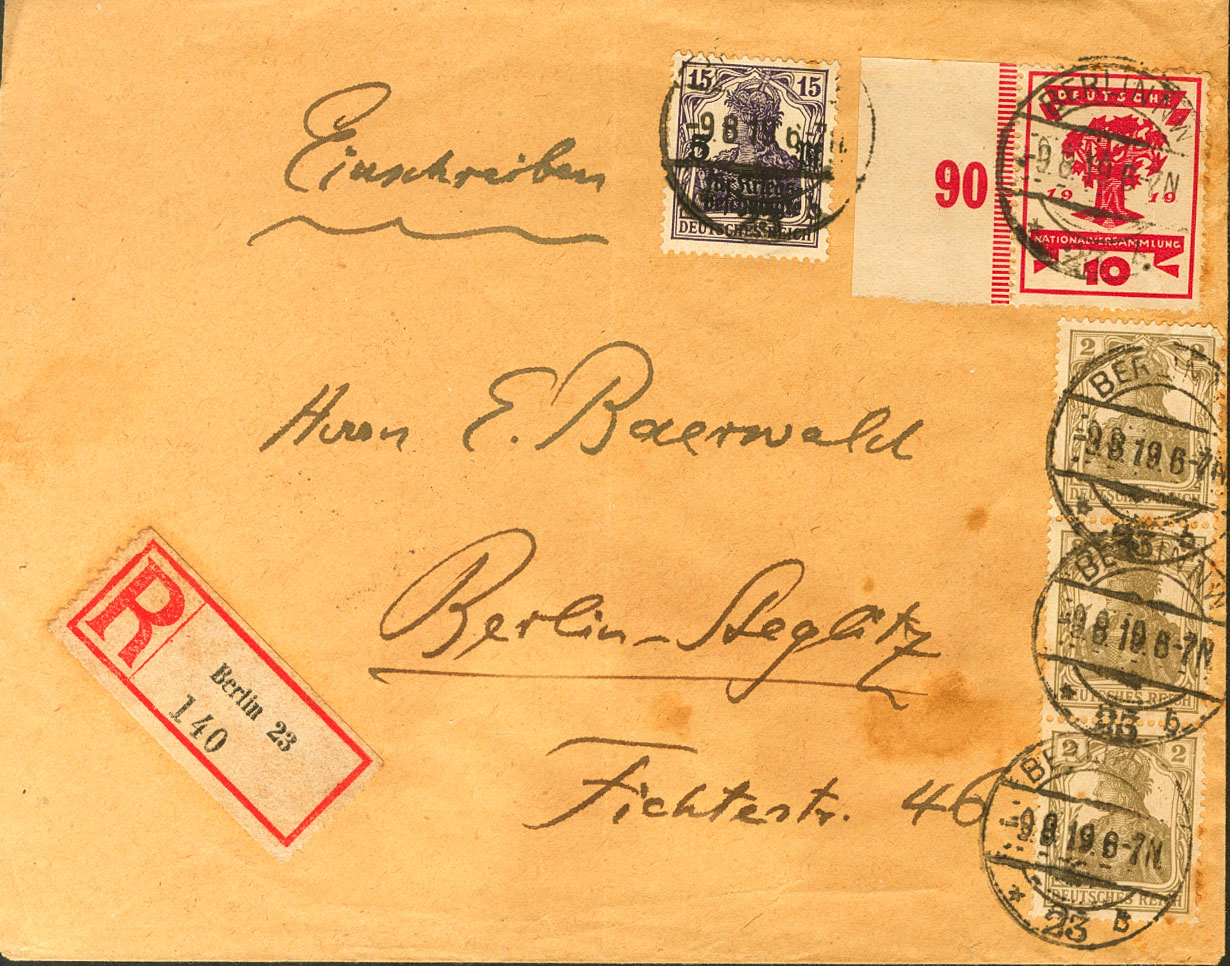 Einschreiben
15 15
5
für Kriegs-
DEUTSCHES REICH
-9.8.19. 6-7N
90
DEUTSCHE
1919
NATIONALVERSAMMLUNG
10
BERLIN NW
-9.8.19. 6-7N
Herrn E. Baerwald
Berlin-Steglitz
Fichtestr. 46
R
Berlin 23
140
2 2
BERLIN
-9.8.19. 6-7N
DEUTSCHES REICH
BERLIN NW
-9.8.19. 6-7N
* 23 b
DEUTSCHES REICH
2 2
-9.8.19. 6-7N
DEUTSCHES REICH
* 23 B